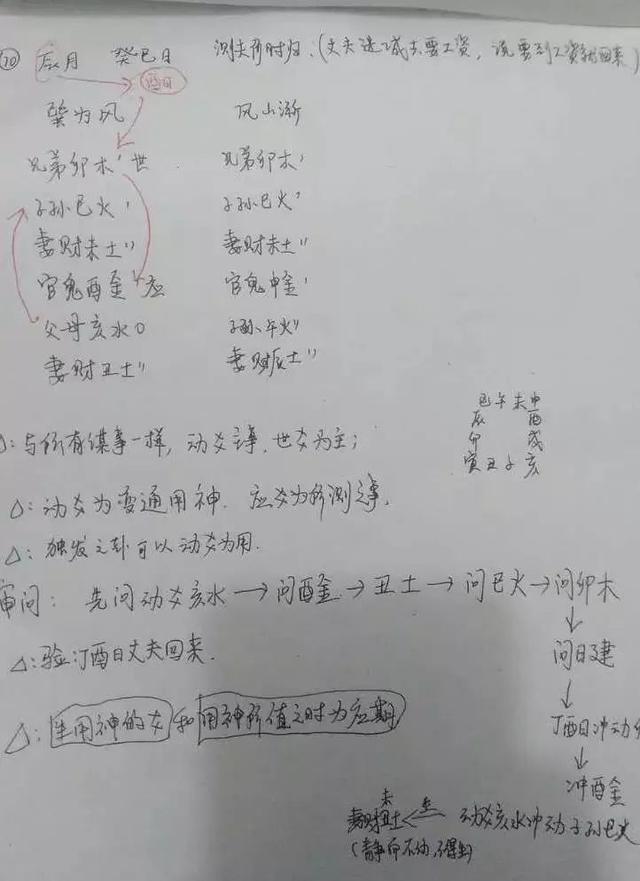 ⑩ 辰月 癸巳日 测夫何时归:(丈夫进城去要工资,说要到工资就回来)
巽为风 风山渐
兄弟卯木' 世 兄弟卯木'
子孙巳火' 子孙巳火'
妻财未土" 妻财未土"
官鬼酉金' 应 官鬼申金'
父母亥水O 子孙午火"
妻财丑土" 妻财辰土"
巳午未申
辰 酉
卯 戌
寅丑子亥
△:与所有谋事一样,动爻主事,世爻为主;
△:动爻为变通用神.应爻为所测之事.
△:独发之卦可以动爻为用.
审问:先问动爻亥水→问酉金→丑土→问巳火→问卯木
↓
问日建
↓
丁酉日冲动
↓
冲酉金
△:验:丁酉日丈夫回来.
△:生用神的爻和用神所值之时为应期
未
妻财丑土 ← 生 动爻亥水冲动子孙巳火
(静而不动,不得生)